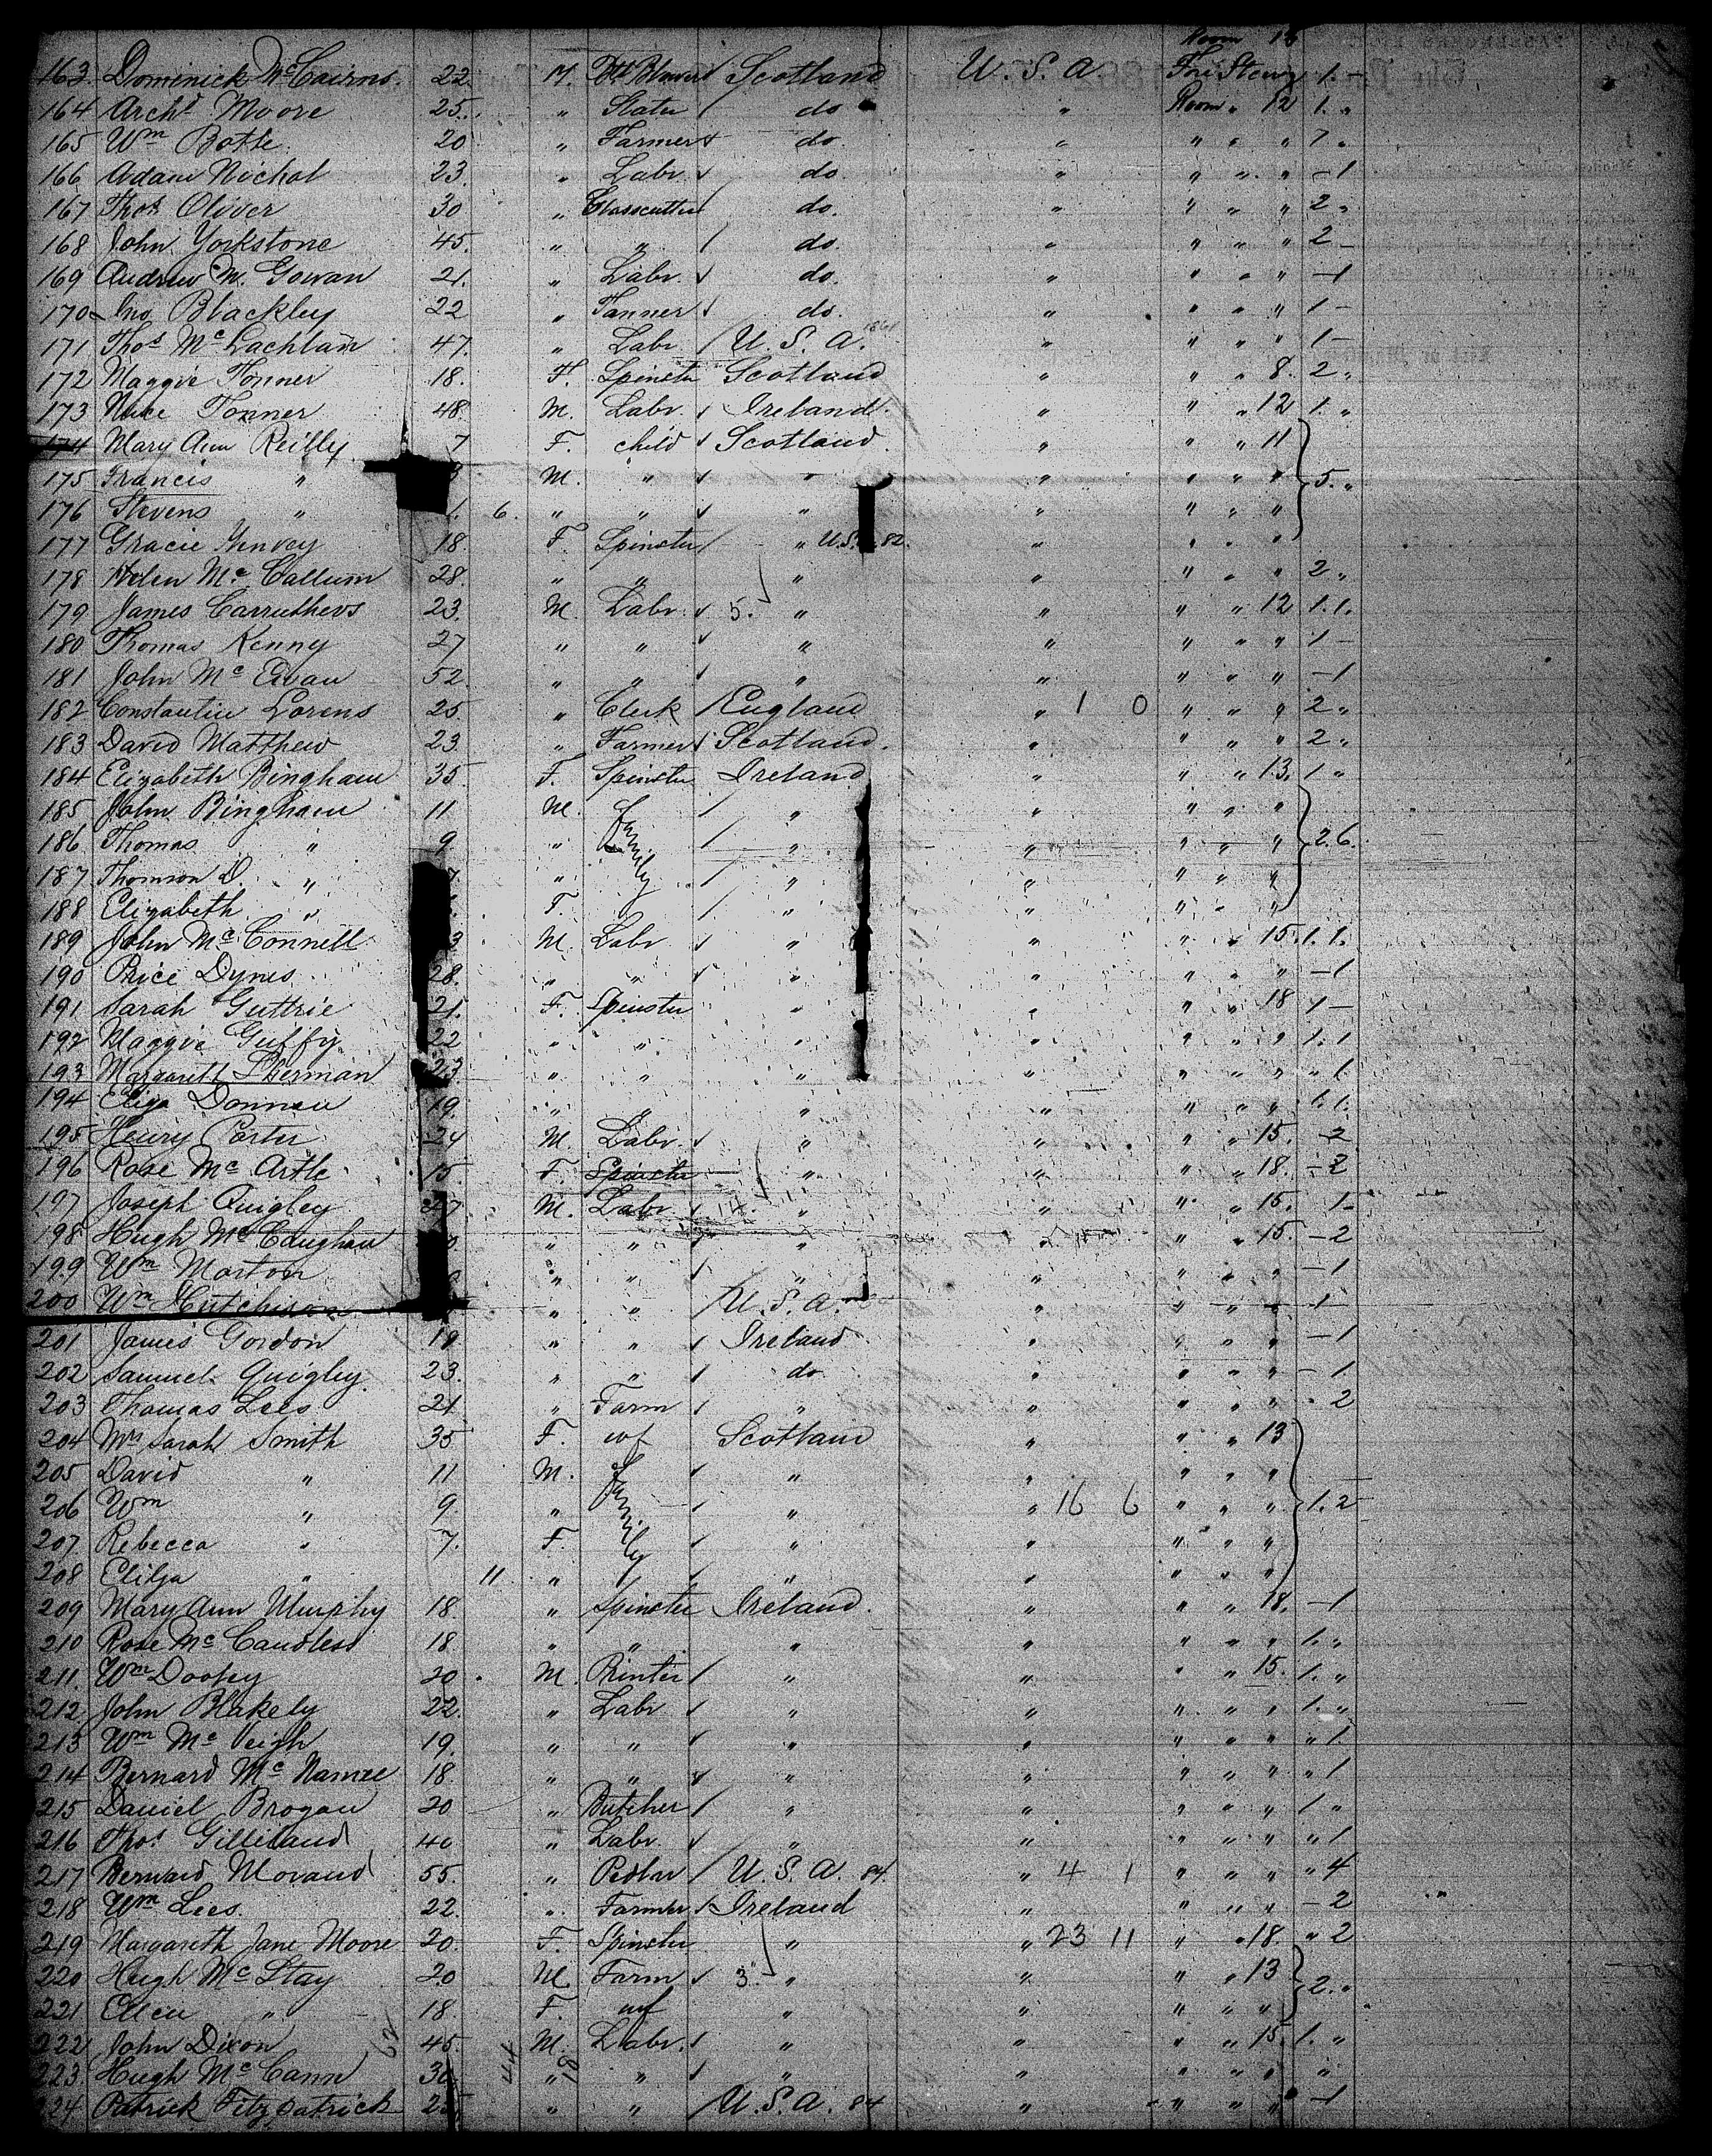 Room 13
163. Dominick McCairns. 22. M. Scotland U. S. A. For. Steerg 1. -
164 Archd Moore 25. " Slater / do " Room " 12 1. "
165 Wm Botte. 20 " Farmer do. " " " "
166 Adam Nichol 23. " Labr. do. " " " " - 1
167 Thos Oliver 30 " Glasscutter do. " " " " 2 "
168 John Yorkstone 45. " " / do. " " " " 2 -
169 Andrew M. Gowan 21. " Labr. do. " " " " - 1
170 Jno Blackley 22 " Tanner do. " " " " 1 -
171 Thos McLachlan 47. " Labr / U. S. A. " " " " 1 -
172 Maggie Tonner 18. F. Spinster Scotland " " " 8. 2 "
173 Tonner 48. M. Labr. Ireland. " " " 12 1. "
174 Mary Ann Reilly 7 F. child Scotland " " " 11
175 Francis " M. " " " " " " 5. "
176 Stevens " 6. " " " " " " "
177 Gracie 18. F. Spinster / " U.S. 82. " " " "
178 Helen McCallum 28. " " " " " " " 2 "
179 James Carruthers 23. M. Labr. 5. " " " " 12 1. 1.
180 Thomas Kenny 27 " " " " " " " 1 -
181 John McEwan 52. " " " " " " " - 1
182 Constantin Lorens 25. " Clerk / England " 1 0 " " " 2 "
183 David Matthew 23. " Farmer Scotland. " " " " 2 "
184 Elizabeth Bingham 35 F. Spinster Ireland " " " 13. 1 "
185 John Bingham 11 M. family / " " " "
186 Thomas " 9 " / " " " " " 2. 6.
187 Thomson D. " 7. " / " " " " "
188 Elizabeth " F. / " " " " "
189 John McConnell 3 M. Labr " " " " 15. 1. 1.
190 Price Dynes 28. " " " " " " " - 1
191 Sarah Guttrie 21. F. Spinster " " " " 18 1 -
192 Maggie Guffy 22 " " " " " " " 1. 1
193 Margarett Sherman 23 " " " " " " " " 1.
194 Eliza Donnan 19. " " " " " " " 1. 1.
195 Henry Porter 24 M Labr. " " " " 15. - 2
196 Rose McArtle 15. F. Spinster " " " " 18. - 2
197 Joseph Quigley 27. M. Labr. 14. " " " " 15. 1 -
198 Hugh McCaughan " " " " " " 15. - 2
199 Wm Morton " " " " " " " - 1
200 Wm Hutchison " " / U. S. A. " " " " - 1
201 James Gordon 18 " " Ireland " " " " - 1
202 Samuel Quigley 23. " " do " " " " - 1.
203 Thomas Lees 21 " Farm " " " " " - 2
204 Mrs Sarah Smith 35 F. wf Scotland " " " 13
205 David " 11 M. family " " " " "
206 Wm " 9. " " " 16 6 " " " 1. 2
207 Rebecca " 7. F. " " " " "
208 Eliza " 11 " " " " " "
209 Mary Ann Murphy 18. " Spinster Ireland. " " " 18. - 1
210 Rose McCandless 18 " " " " " " " 1. "
211. Wm Dooley 20. M. Printer / " " " " 15. 1. "
212 John Blakely 22. " Labr " " " " " 1. "
213 Wm McVeigh 19. " " " " " " " " 1
214 Bernard McNamee 18. " " " " " " " " 1
215 Daniel Brogan 20 " Butcher / " " " " " 1 "
216 Thos Gilliland 40 " Labr. " " " " " " 1
217 Bernard Morand 55. " Pedlar / U. S. A. 84. " 4 1 " " " " 4
218 Wm Lees. 22. " Farmer Ireland " " " " - 2
219 Margareth Jane Moore 20. F. Spinster " " 23 11 " " 18. " 2
220 Hugh McStay 20 M Farm 3. " " " " 13 2. "
221 Ellen " 18. F. wf " " " " "
222 John Dixon 45. M. Labr. " " " " 15. 1. "
223 Hugh McCann 30 " " " " " " " "
224 Patrick Fitzpatrick 25 " " / U. S. A. 84 " " " " - 1
62 44 18